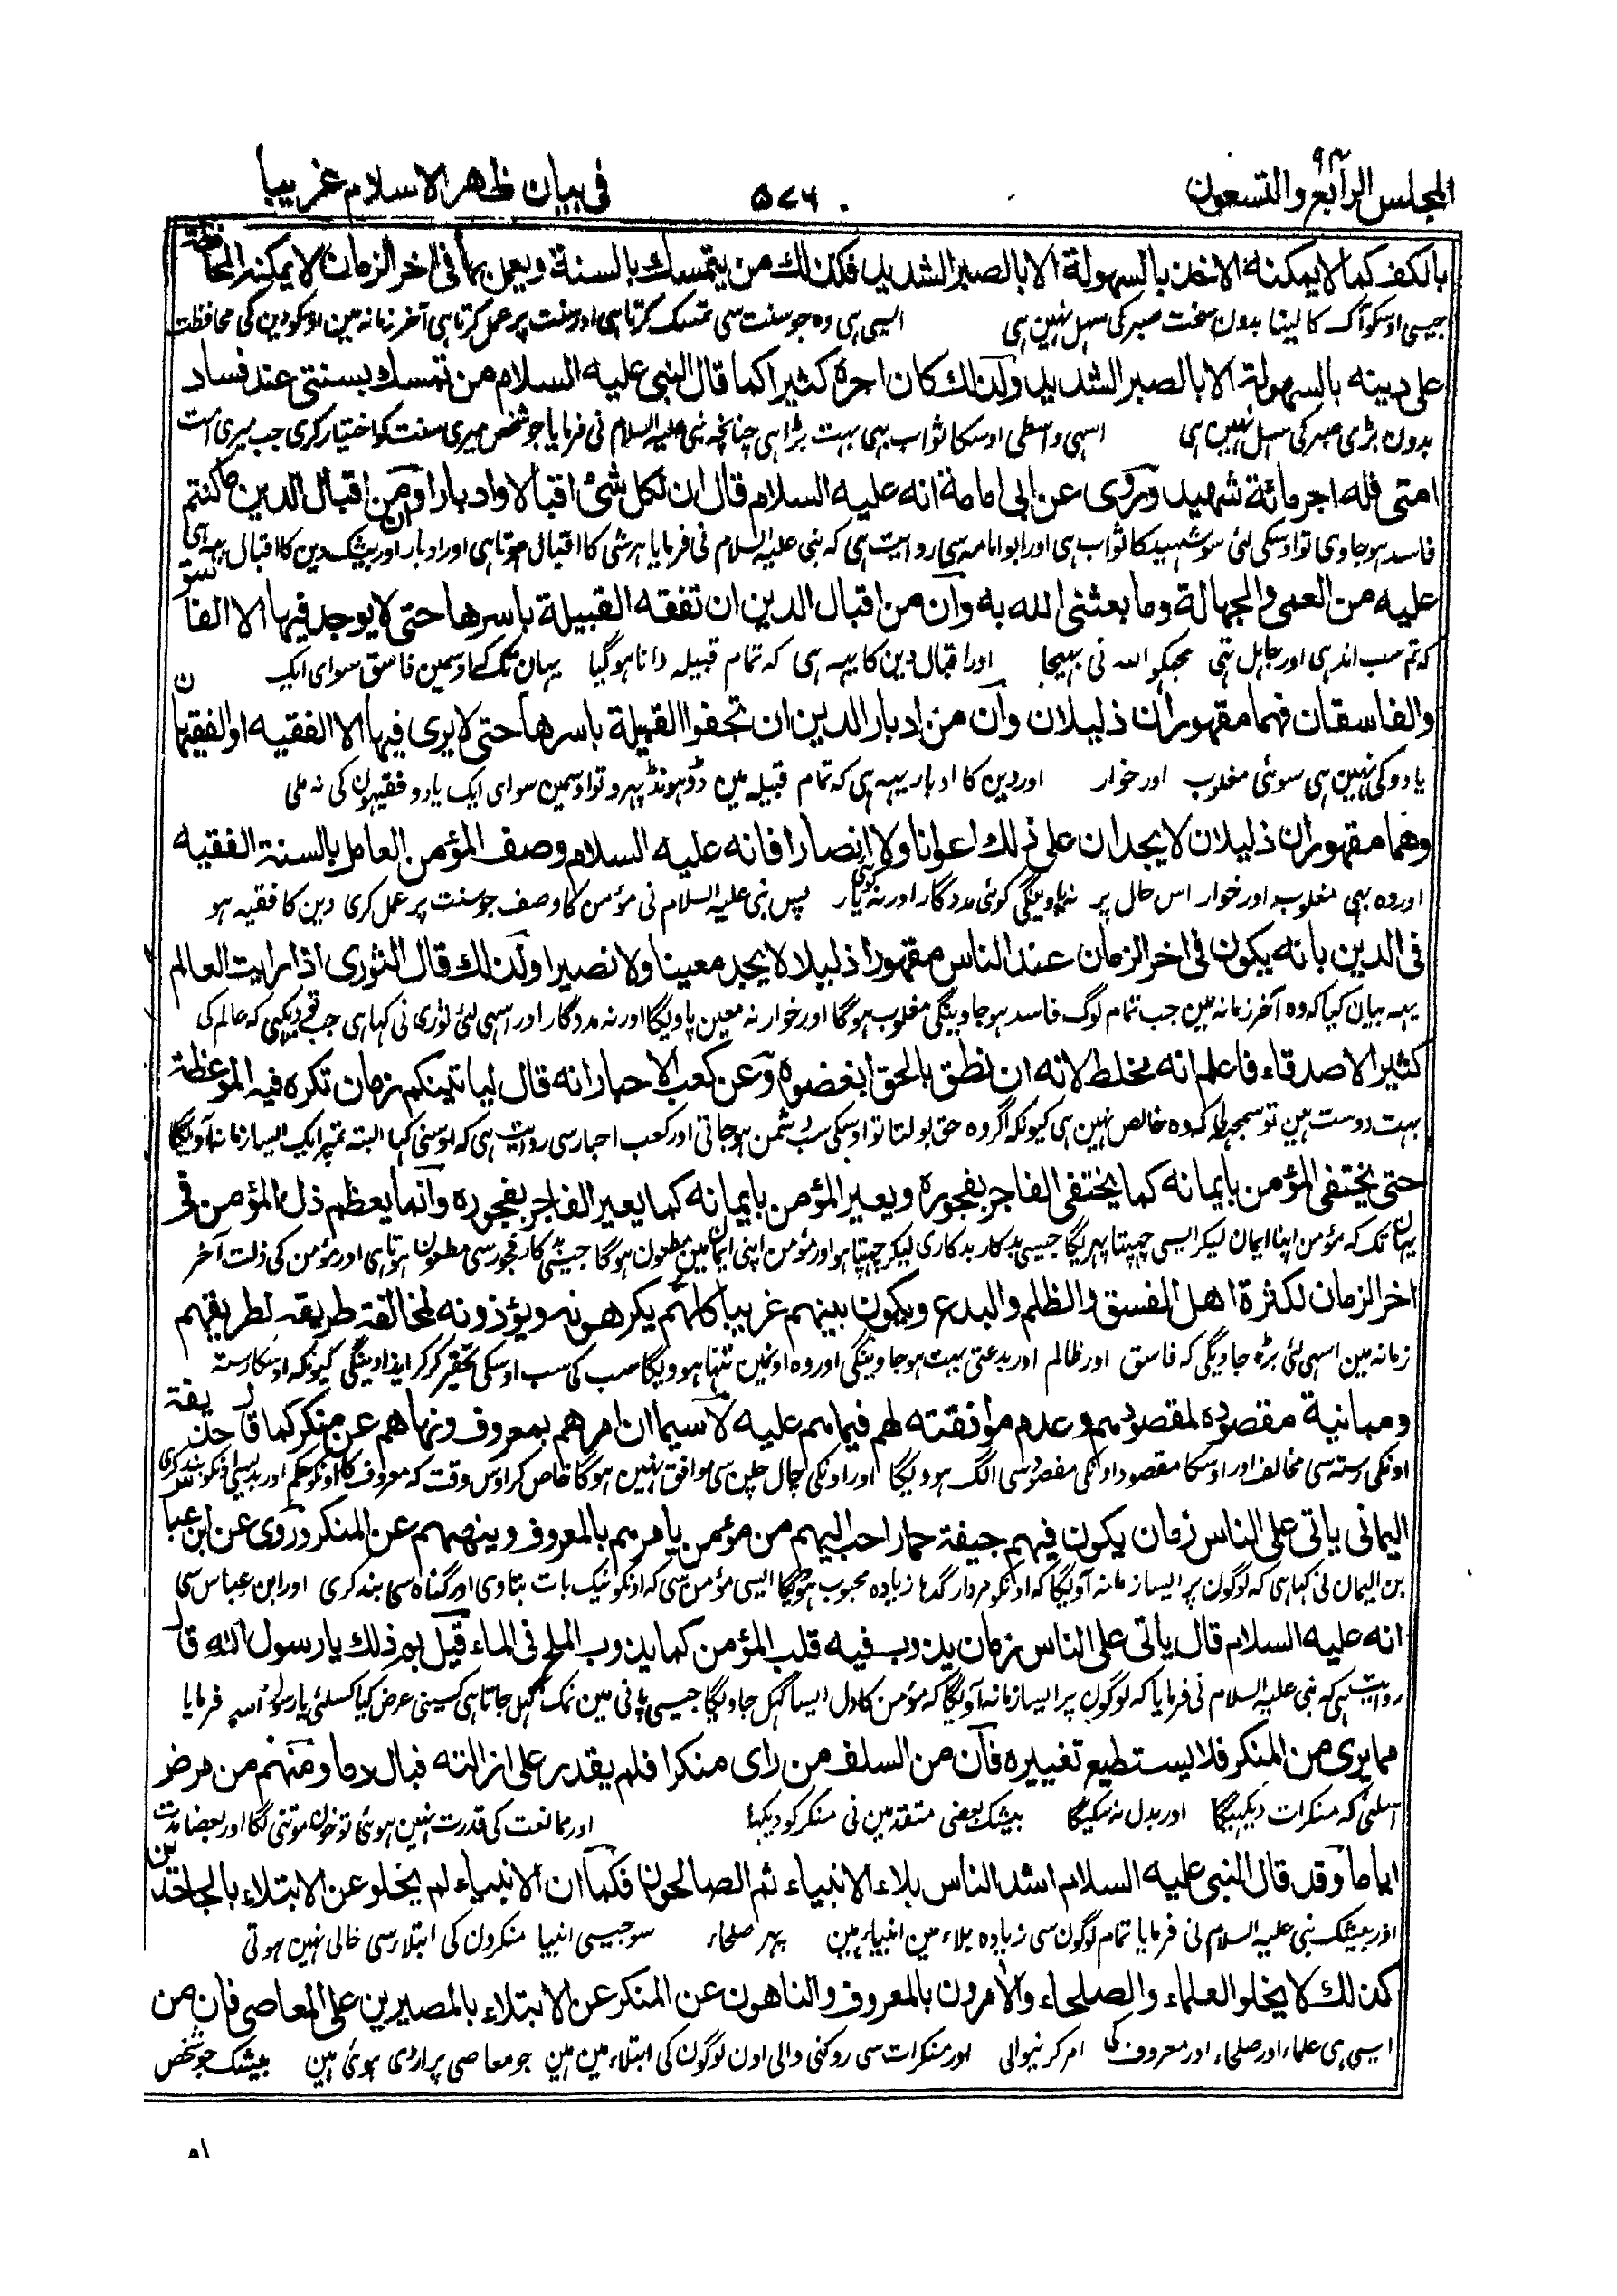 المجلس الرابع والتسعون ۹۴ ۵۷۶ فى بيان ظهر الاسلام غريبا
بالكف كما لا يمكنه الاخذ بالسهولة الا بالصبر الشديد فكذلك من يتمسك بالسنة ويعمل بها فى اخر الزمان لا يمكنه المحافظة
جیسی اوسکو آگ کا لینا بدون سخت صبر کی سہل نہین ہی ایسی ہی وہ جو سنت سی تمسک کرتا ہی اور سنت پر عمل کرتا ہی آخر زمانہ مین اوسکو دین کی محافظت
على دينه بالسهولة الا بالصبر الشديد ولذلك كان اجره كثيرا كما قال النبى عليه السلام من تمسك بسنتى عند فساد
بدون بڑی صبر کی سہل نہین ہی اسی واسطی اوسکا ثواب بہی بہت بڑا ہی چنانچہ نبی علیہ السلام نی فرمایا جو شخص میری سنت کو اختیار کری جب میری امت
امتى فله اجر مائة شهيد وروى عن ابى امامة انه عليه السلام قال ان لكل شئ اقبالا وادبارا وان من اقبال الدين ما كنتم
فاسد ہو جاوی تو اوسکی لئی سو شہید کا ثواب ہی اور ابو امامہ سی روایت ہی کہ نبی علیہ السلام نی فرمایا ہر شی کا اقبال ہوتا ہی اور ادبار اور بیشک دین کا اقبال یہہ ہی
عليه من العمى والجهالة وما بعثنى الله به وان من اقبال الدين ان تفقه القبيلة باسرها حتى لا يوجد فيها الا الفاسق
کہ تم سب اندہی اور جاہل تہی مجہکو اللہ نی بہیجا اور اقبال دین کا یہہ ہی کہ تمام قبیلہ دانا ہوگیا یہان تک کہ اوسمین فاسق سوای ایک
والفاسقان فهما مقهوران ذليلان وان من ادبار الدين ان تجفوا القبيلة باسرها حتى لا يرى فيها الا الفقيه او الفقيهان
یا دو کی نہین ہی سوئی مغلوب اور خوار اور دین کا ادبار یہہ ہی کہ تمام قبیلہ مین ڈہونڈ پہرو تو اوسمین سوای ایک یا دو فقیہون کی نہ ملی
وهما مقهوران ذليلان لا يجدان على ذلك اعوانا ولا انصارا فانه عليه السلام وصف المؤمن العامل بالسنة الفقيه
اور وہ بہی مغلوب اور خوار اس حال پر نہ پاوینگی کوئی مددگار اور نہ کوئی یار پس نبی علیہ السلام نی مؤمن کا وصف جو سنت پر عمل کری دین کا فقیہ ہو
فى الدين بانه يكون فى اخر الزمان عند الناس مقهورا ذليلا لا يجد معينا ولا نصيرا ولذلك قال الثورى اذا رايت العالم
یہہ بیان کیا کہ وہ آخر زمانہ مین جب تمام لوگ فاسد ہو جاوینگی مغلوب ہوگا اور خوار نہ معین پاویگا اور نہ مددگار اور اسی لئی ثوری نی کہا ہی جب تو دیکہی کہ عالم کی
كثير الاصدقاء فاعلم انه مخلط لانه ان نطق بالحق ابغضوه وعن كعب الاحبار انه قال لياتينكم زمان تكره فيه الموعظة
بہت دوست ہین تو سمجہ لی کہ وہ خالص نہین ہی کیونکہ اگر وہ حق بولتا تو اوسکی سب دشمن ہو جاتی اور کعب احبار سی روایت ہی کہ اوسنی کہا البتہ تمپر ایک ایسا زمانہ آویگا
حتى يختفى المؤمن بايمانه كما يختفى الفاجر بفجوره ويعير المؤمن بايمانه كما يعير الفاجر بفجوره وانما يعظم ذل المؤمن فى
یہان تک کہ مؤمن اپنا ایمان لیکر ایسی چہپتا پہریگا جیسی بدکار بدکاری لیکر چہپتا ہو اور مؤمن اپنی ایمان مین مطعون ہوگا جیسی بدکار فجور سی مطعون ہوتا ہی اور مؤمن کی ذلت آخر
اخر الزمان لكثرة اهل الفسق والظلم والبدع ويكون بينهم غريبا كلهم يكرهونه ويؤذونه لمخالفة طريقه لطريقهم
زمانہ مین اسی لئی بڑہ جاویگی کہ فاسق اور ظالم اور بدعتی بہت ہو جاوینگی اور وہ اونمین تنہا ہوویگا سب کی سب اوسکی تحقیر کر کر ایذا دینگی کیونکہ اوسکا رستہ
ومباينة مقصوده لمقصودهم وعدم موافقته لهم فيما هم عليه لاسيما ان امرهم بمعروف ونهاهم عن منكر كما قال حذيفة
اونکی رستہ سی مخالف اور اوسکا مقصود اونکی مقصود سی الگ ہوویگا اور اونکی چال چلن سی موافق نہین ہوگا خاص کر اوس وقت کہ معروف کا اونکو حکم اور بدی سی اونکو بند کری
اليمانى ياتى على الناس زمان يكون فيهم جيفة حمار احب اليهم من مؤمن يامرهم بالمعروف وينهيهم عن المنكر وروى عن ابن عباس
بن الیمان نی کہا ہی کہ لوگون پر ایسا زمانہ آویگا کہ اونکو مردار گدہا زیادہ محبوب ہوویگا ایسی مؤمن سی کہ اونکو نیک بات بتاوی اور گناہ سی بند کری اور ابن عباس سی
انه عليه السلام قال ياتى على الناس زمان يذوب فيه قلب المؤمن كما يذوب الملح فى الماء قيل بم ذلك يا رسول الله قال
روایت ہی کہ نبی علیہ السلام نی فرمایا کہ لوگون پر ایسا زمانہ آویگا کہ مؤمن کا دل ایسا گہل جاویگا جیسی پانی مین نمک گہل جاتا ہی کسینی عرض کیا کسلئی یا رسول اللہ فرمایا
مما يرى من المنكر فلا يستطيع تغييره فان من السلف من راى منكرا فلم يقدر على ازالته فبال دما ومنهم من مرض
اسلئی کہ منکرات دیکہیگا اور بدل نہ سکیگا بیشک بعضی متقدمین نی منکر کو دیکہا اور ممانعت کی قدرت نہین ہوئی تو خون موتنی لگا اور بعضا مدت
اياما وقد قال النبى عليه السلام اشد الناس بلاء الانبياء ثم الصالحون فكما ان الانبياء لم يخلو عن الابتلاء بالجاحدين
اور بیشک نبی علیہ السلام نی فرمایا تمام لوگون سی زیادہ بلاء مین انبیاء ہین پہر صلحاء سو جیسی انبیا منکرون کی ابتلا سی خالی نہین ہوتی
كذلك لا يخلو العلماء والصلحاء والامرون بالمعروف والناهون عن المنكر عن الابتلاء بالمصيرين على المعاصى فان من
ایسی ہی علماء اور صلحاء اور معروف کی امر کرنیوالی اور منکرات سی روکنی والی اون لوگون کی ابتلاء مین ہین جو معاصی پر اڑی ہوئی ہین بیشک جو شخص